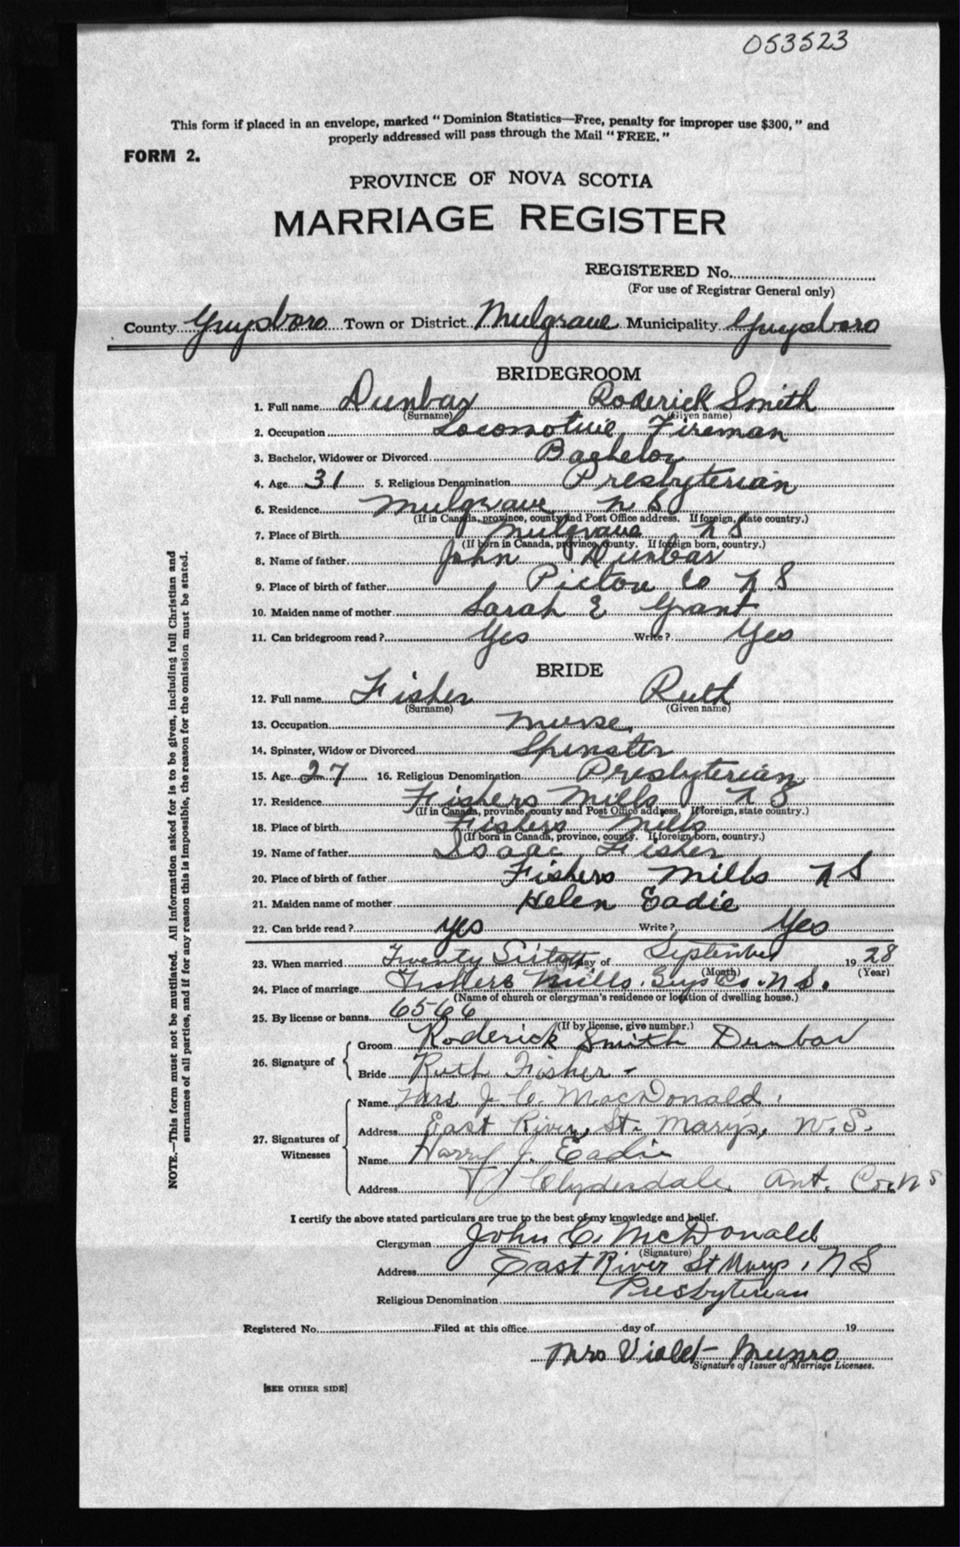 053523
This form if placed in an envelope, marked "Dominion Statistics—Free, penalty for improper use $300," and
properly addressed will pass through the Mail "FREE."
FORM 2.
PROVINCE OF NOVA SCOTIA
MARRIAGE REGISTER
REGISTERED No.
(For use of Registrar General only)
County Guysboro Town or District Mulgrave Municipality Guysboro
BRIDEGROOM
1. Full name Dunbar Roderick Smith
(Surname) (Given name)
2. Occupation Locomotive Fireman
3. Bachelor, Widower or Divorced Bachelor
4. Age 31 5. Religious Denomination Presbyterian
6. Residence Mulgrave N S
(If in Canada, province, county and Post Office address. If foreign, state country.)
7. Place of Birth Mulgrave N S
(If born in Canada, province, county. If foreign born, country.)
8. Name of father John Dunbar
9. Place of birth of father Pictou Co N S
10. Maiden name of mother Sarah E Grant
11. Can bridegroom read? Yes Write? Yes
BRIDE
12. Full name Fisher Ruth
(Surname) (Given name)
13. Occupation Nurse
14. Spinster, Widow or Divorced Spinster
15. Age 27 16. Religious Denomination Presbyterian
17. Residence Fishers Mills N S
(If in Canada, province, county and Post Office address. If foreign, state country.)
18. Place of birth Fishers Mills
(If born in Canada, province, county. If foreign born, country.)
19. Name of father Isaac Fisher
20. Place of birth of father Fishers Mills N S
21. Maiden name of mother Helen Eadie
22. Can bride read? yes Write? Yes
23. When married Twenty day of September 1928
(Month) (Year)
24. Place of marriage Fishers Mills. Guys Co. N S.
(Name of church or clergyman's residence or location of dwelling house.)
25. By license or banns 6566
(If by license, give number.)
26. Signature of
Groom Roderick Smith Dunbar
Bride Ruth Fisher -
27. Signatures of Witnesses
Name Mrs J. C. MacDonald.
Address East River, St. Marys, N.S.
Name Harry J. Eadie
Address Clydesdale Ant. Co. N S
I certify the above stated particulars are true to the best of my knowledge and belief.
Clergyman John C. McDonald
(Signature)
Address East River St Marys, N S
Religious Denomination Presbyterian
Registered No. Filed at this office day of 19
Mrs Violet Munro
Signature of Issuer of Marriage Licenses.
[SEE OTHER SIDE]
NOTE.—This form must not be mutilated. All information asked for is to be given, including full Christian and
surnames of all parties, and if for any reason this is impossible, the reason for the omission must be stated.